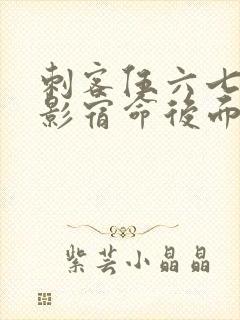 刺客伍六七
影宿命後而
紫芸小晶晶